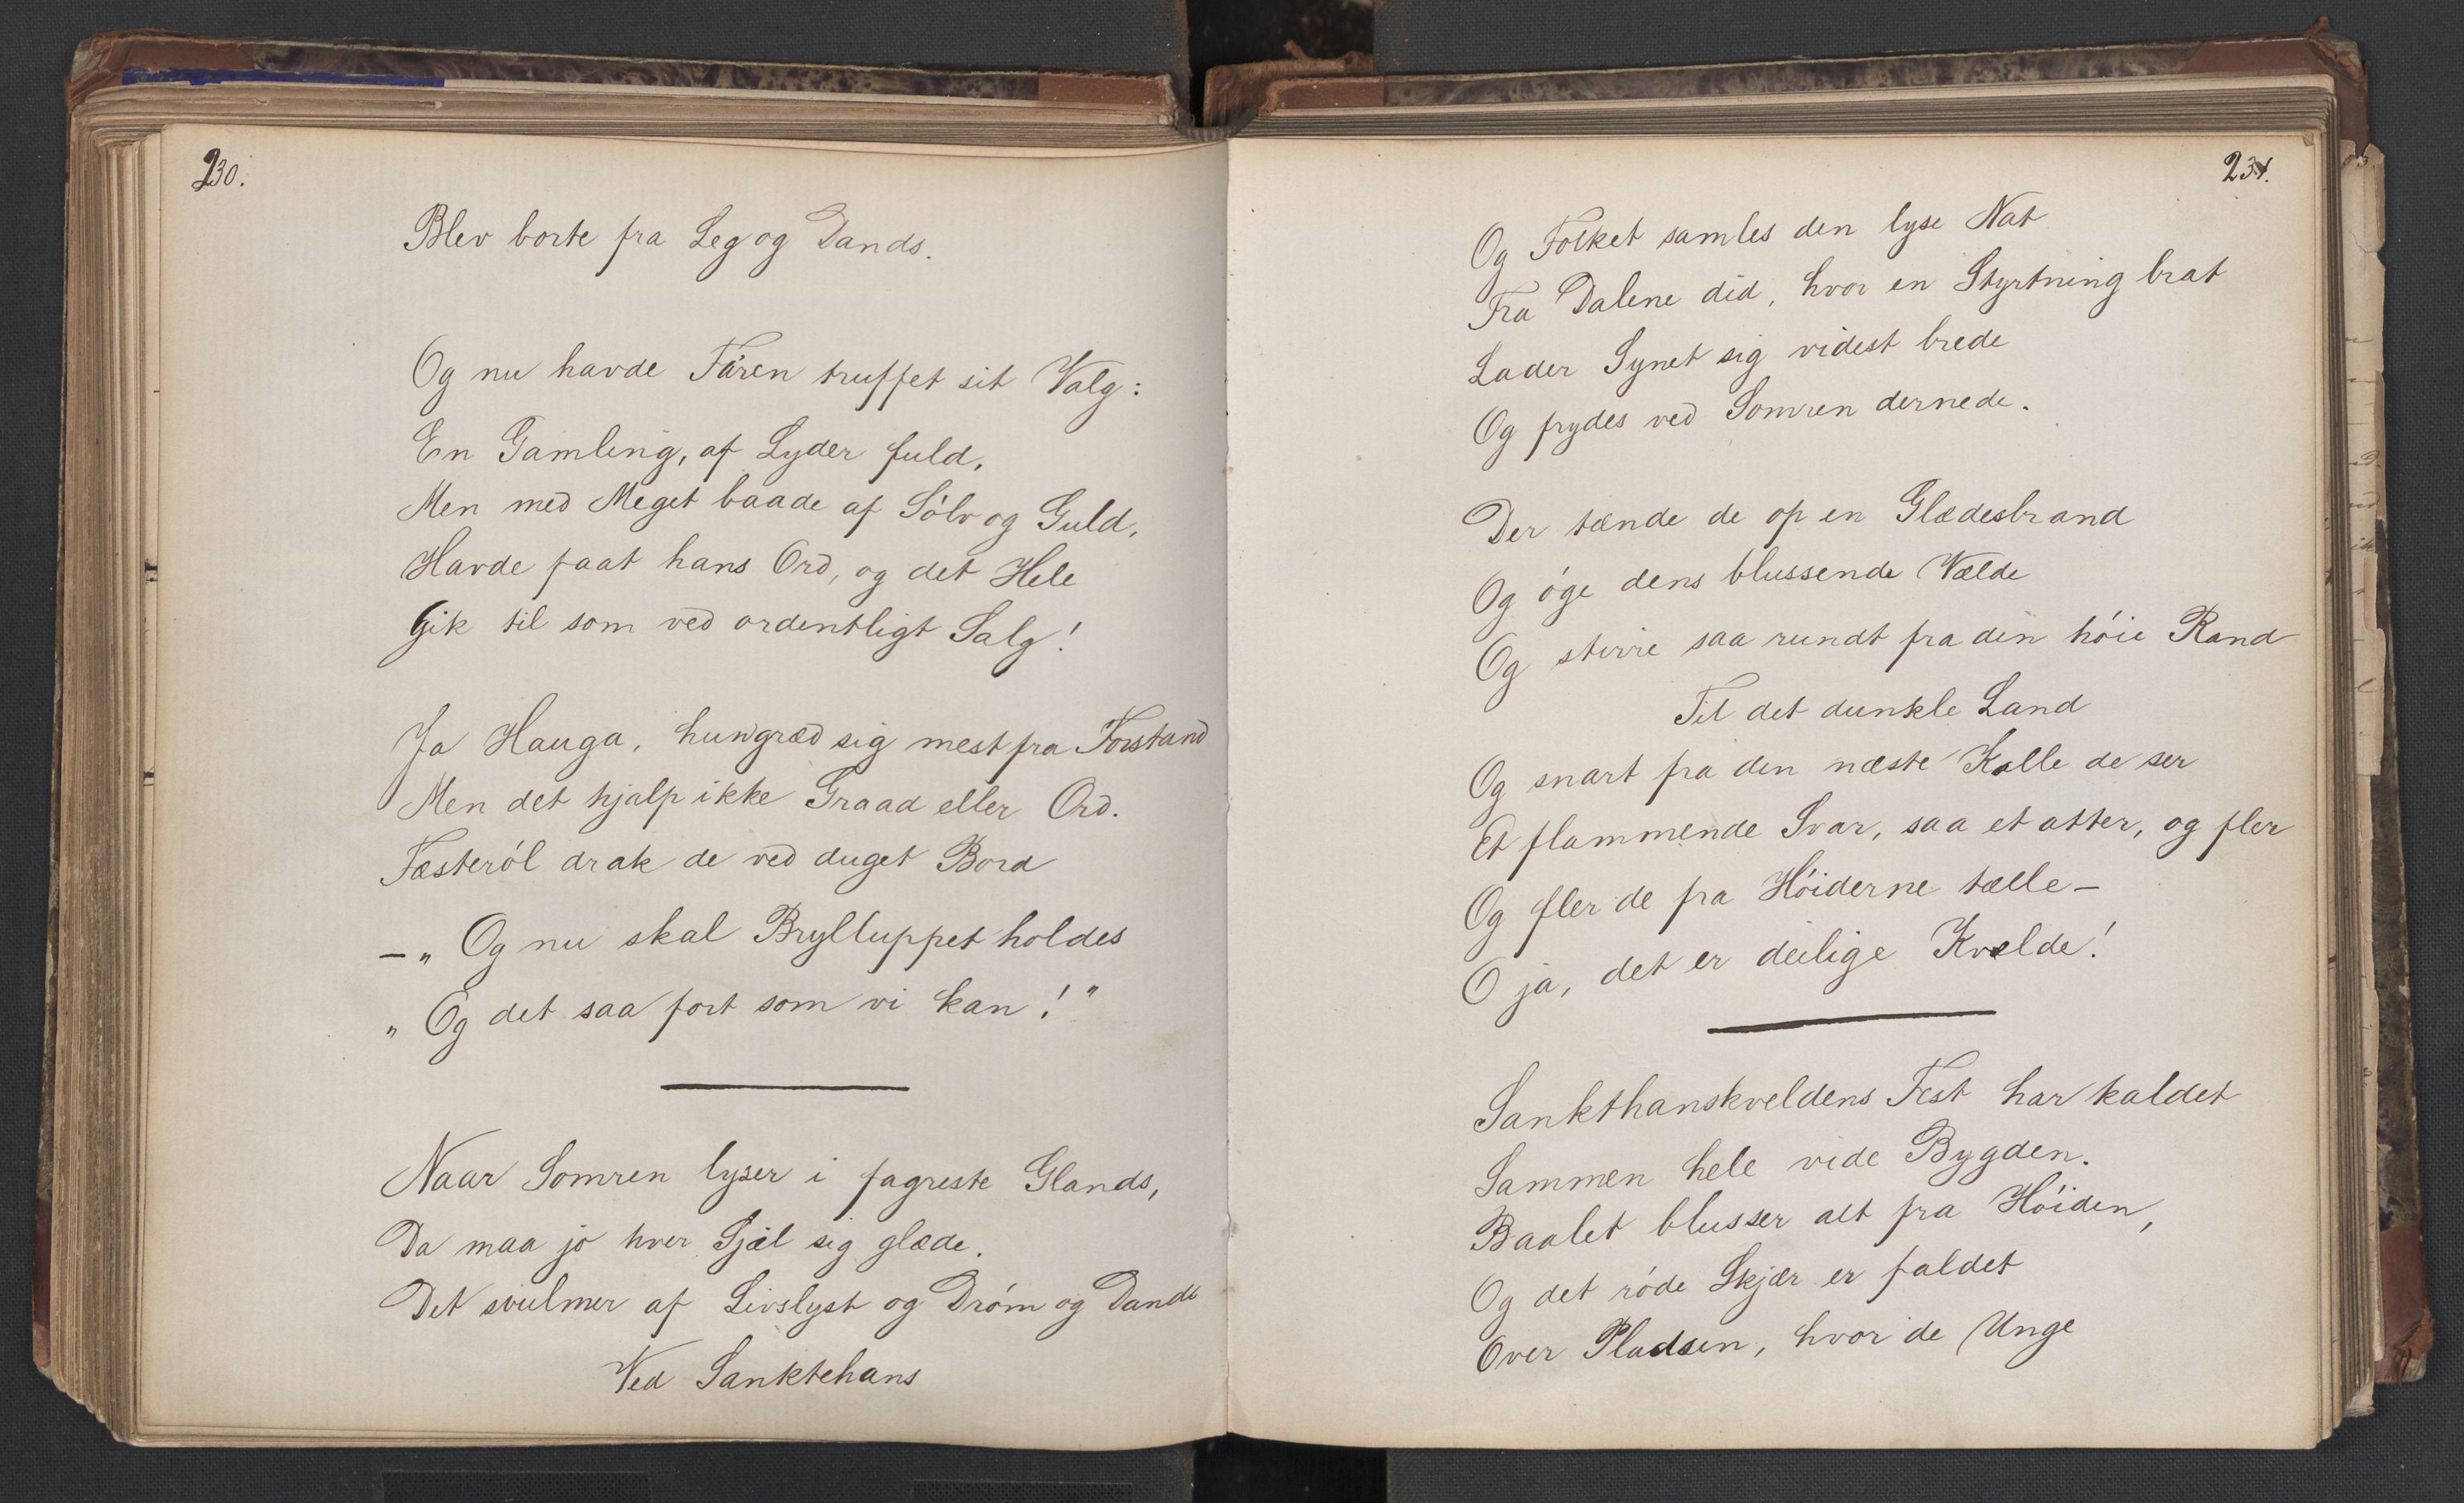 230.
Blev borte fra Leg og Dands.
Og nu havde Faren truffet sit Valg:
En Gamling, af Lyder fuld,
Men med Meget baade af Sólv og Guld,
Havde faat hans Ord, og det Hele
Gik til som ved ordentligt Salg!
Ja Hauga, hun græd sig mest fra Forstand
Men det hjalp ikke Graad eller Ord.
Fæsteról drak de ved duget Bord
— „ Og nu skal Brylluppet holdes
„ Og det saa fort som vi kan! "
Naar Somren lyser i fagreste Glands,
Da maa jo hver Sjæl sig glæde.
Det svulmer af Livslyst og Dróm og Dands
Ved Sanktehans
231.
Og Folket samles den lyse Nat
Fra Dalene did, hvor en Styrtning brat
Lader Synet sig videst brede
Og frydes ved Somren dernede.
Der tænde de op en Glædesbrand
Og óge dens blussende Vælde
Og stirre saa rundt fra den hóie Rand
Til det dunkle Land
Og snart fra den næste Kolle de ser
Et flammende Svar, saa et atter, og fler
Og fler de fra Hóiderne tælle —
O ja, det er deilige Kvelde!
Sankthanskveldens Fest har kaldet
Sammen hele vide Bygden.
Baalet blusser alt fra Hóiden,
Og det róde Skjær er faldet
Over Pladsen, hvor de Unge